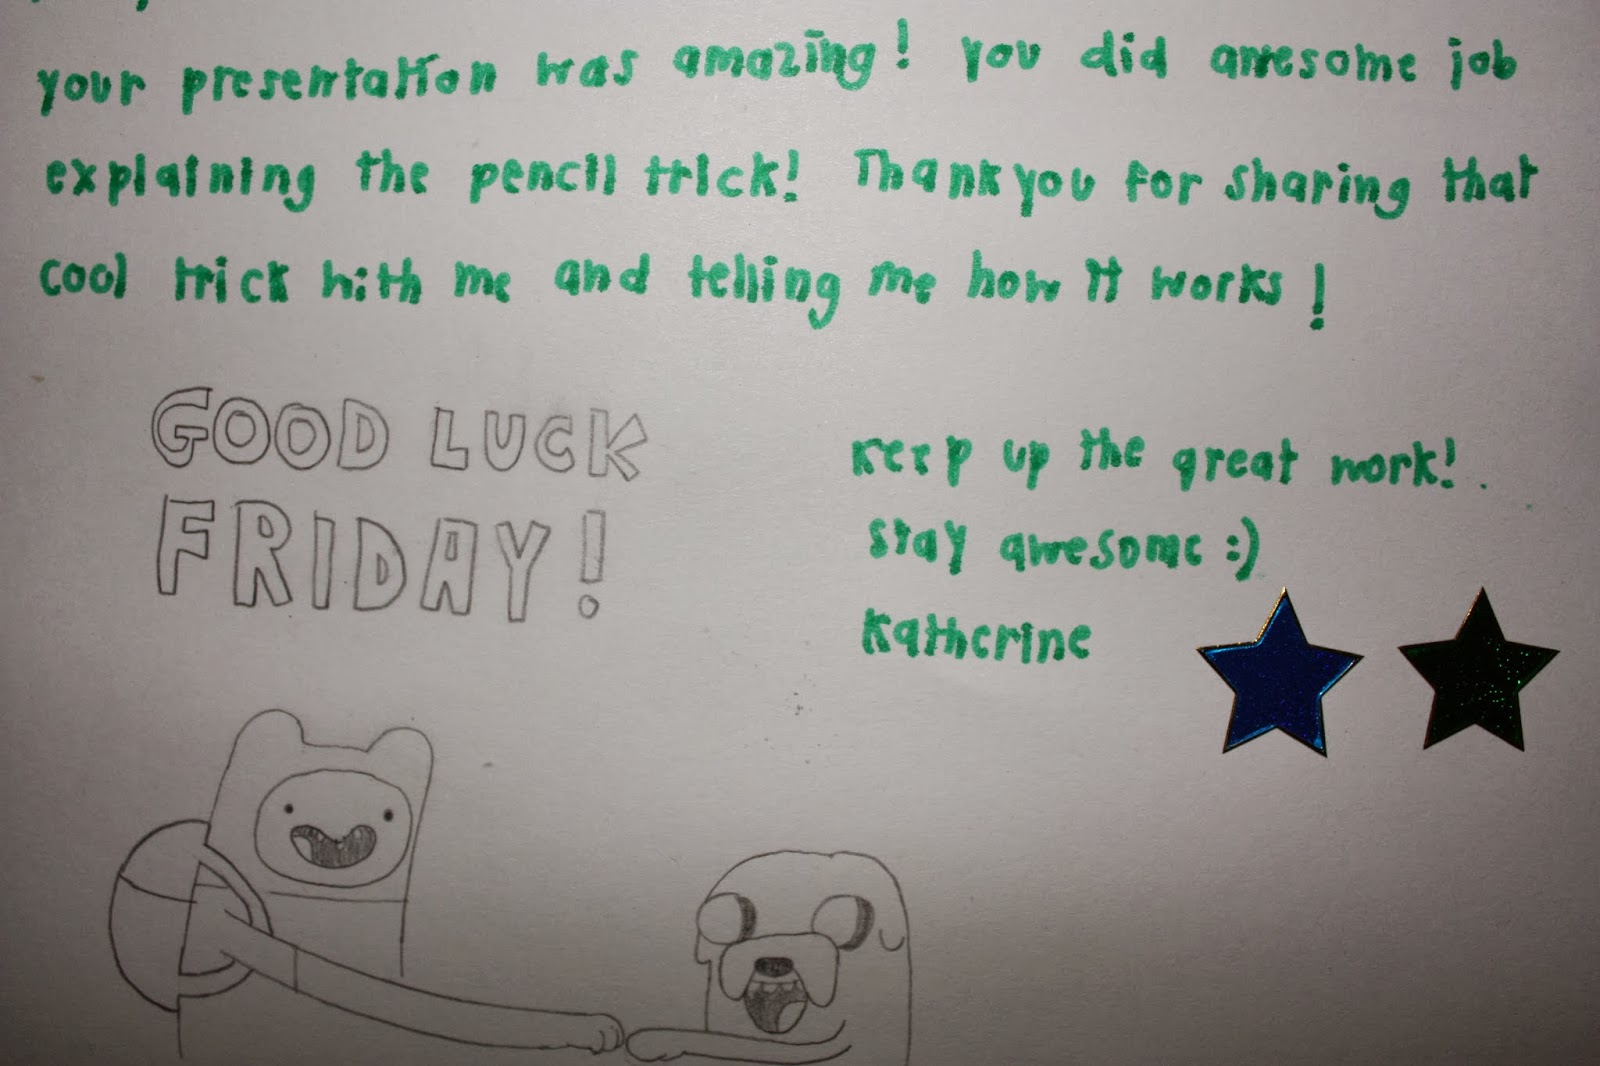 your presentation was amazing! you did awesome job
explaining the pencil trick! Thank you for sharing that
cool trick with me and telling me how it works!
GOOD LUCK
FRIDAY!
Keep up the great work!
stay awesome :)
Katherine